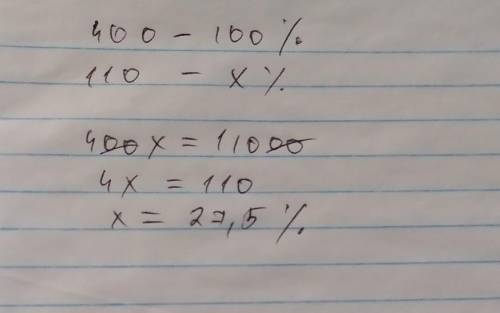 400 - 100 %
110 - x %
400x = 11000
4x = 110
x = 27,5 %